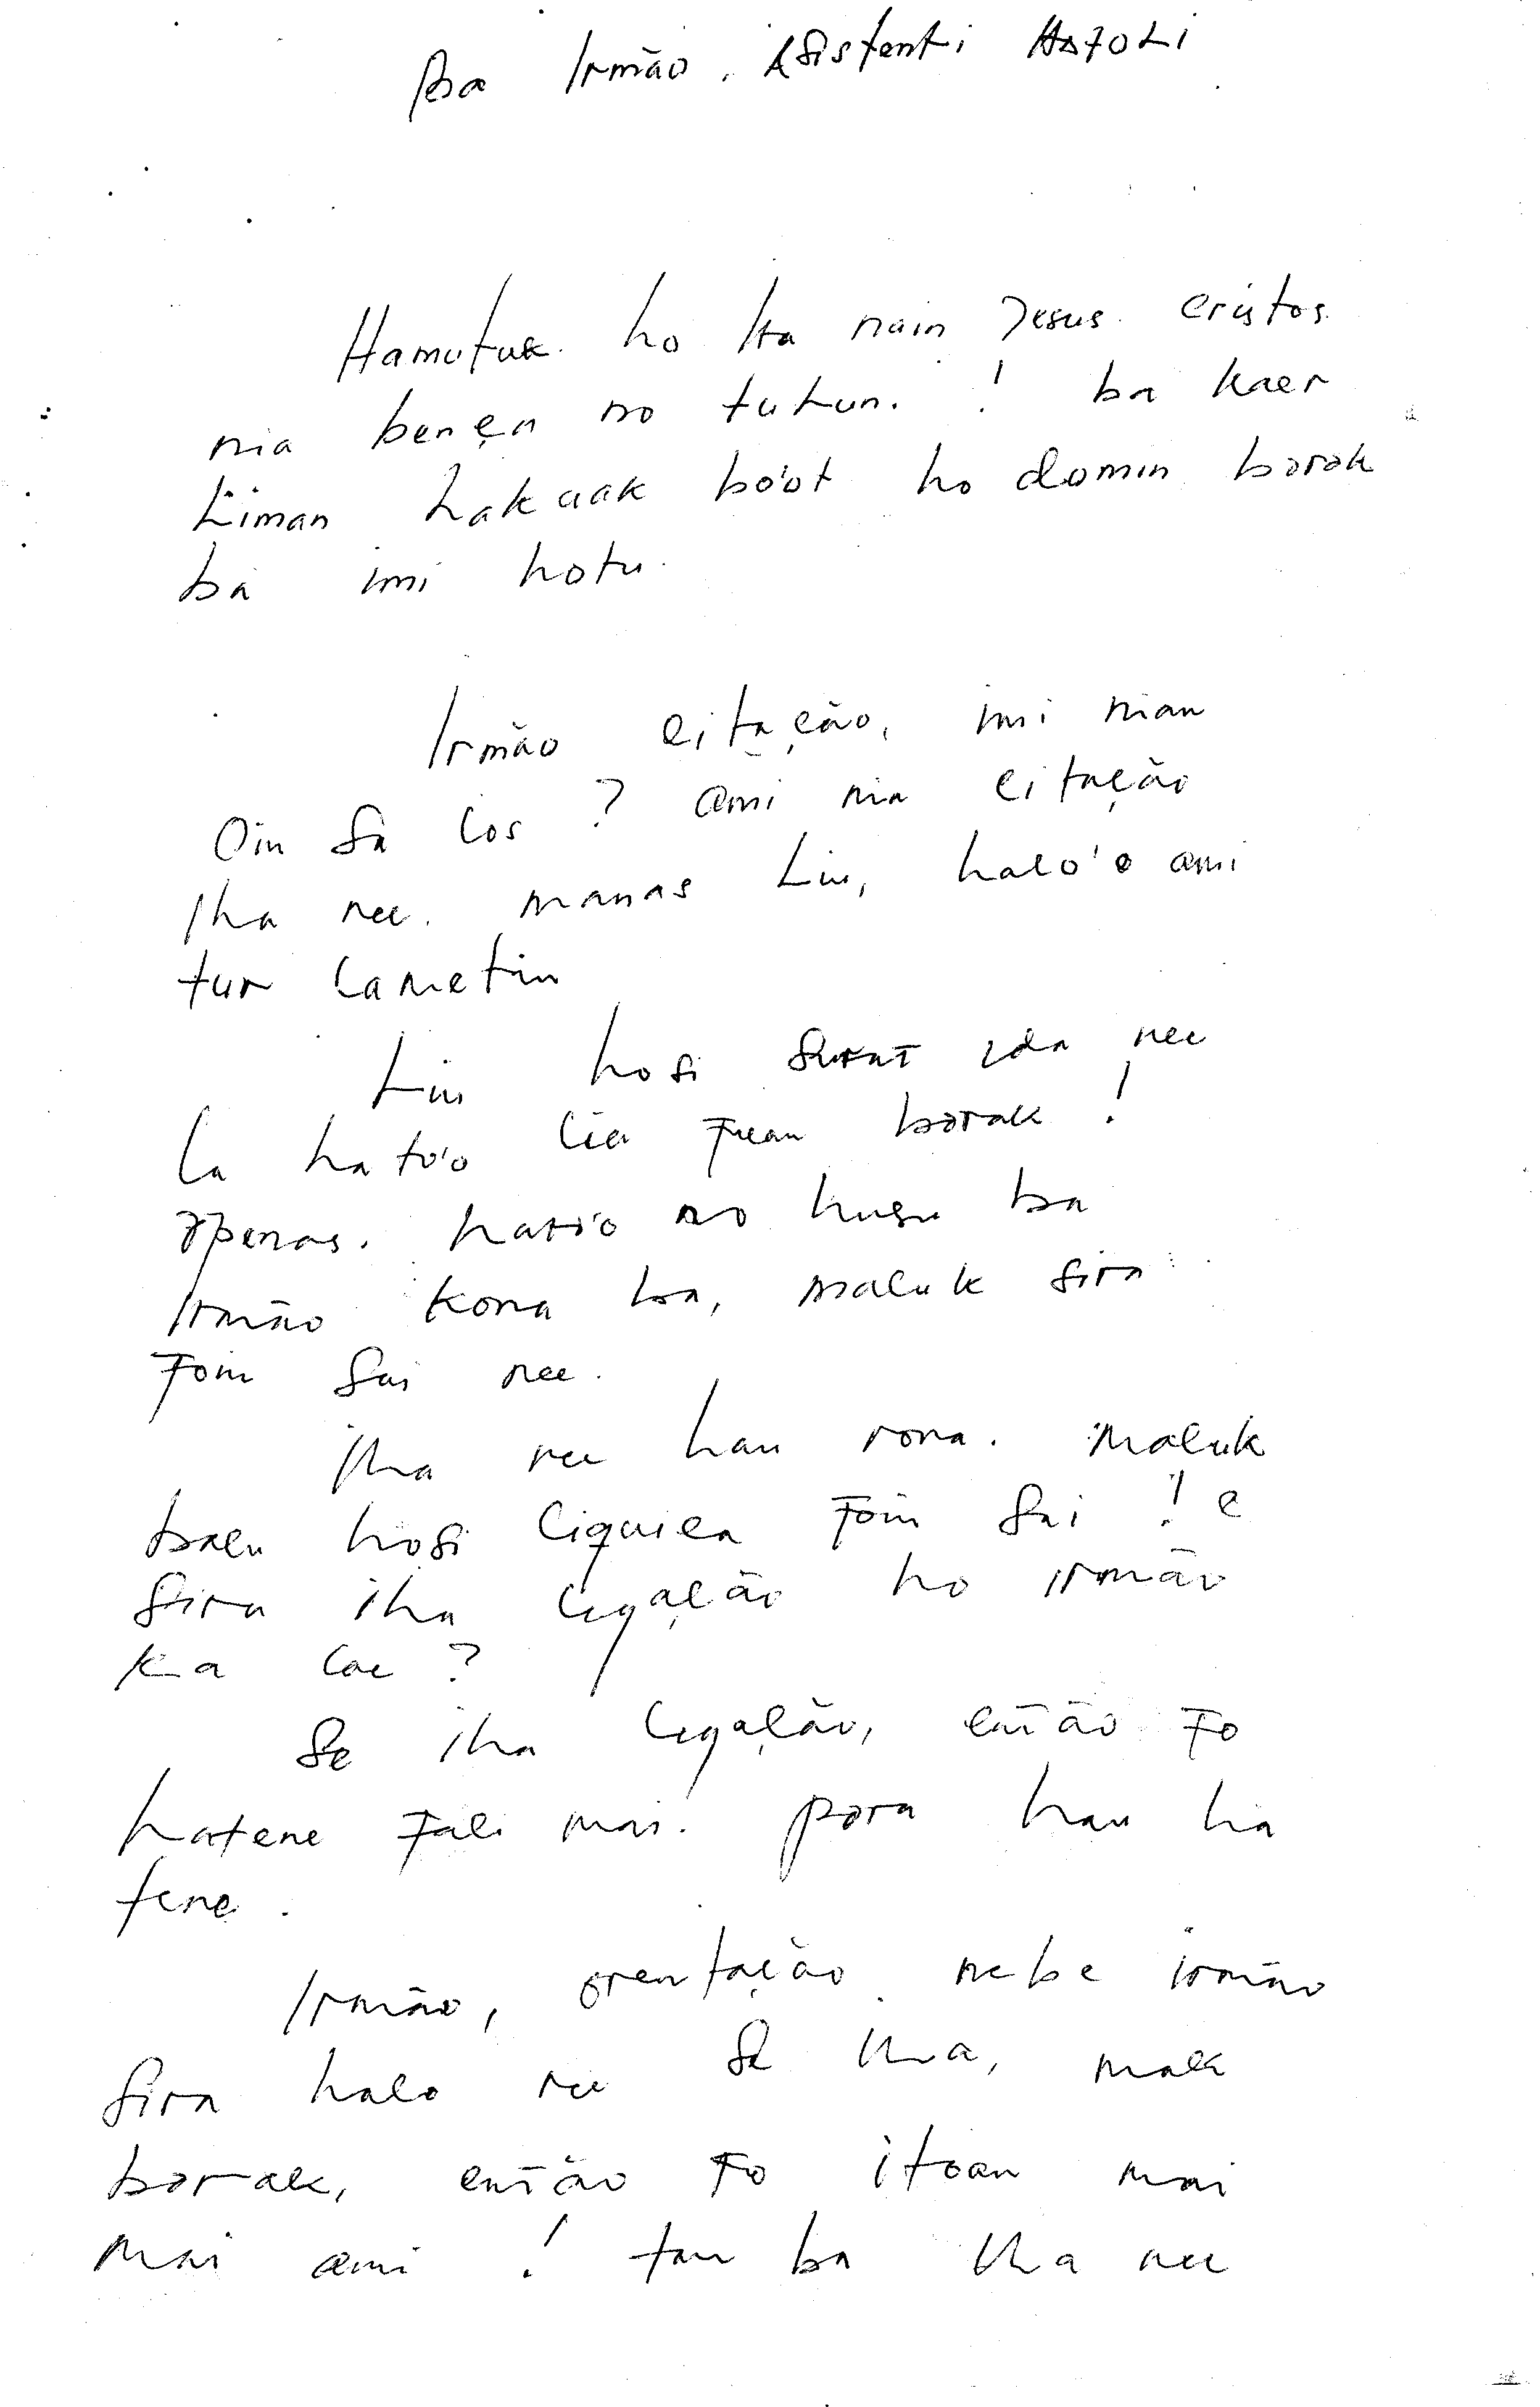 Ba Irmão, Asistenti HAFOLI
Hamutuk ho Ita nain Jesus Cristos
nia bença no tulun. ! ba kaer
Liman hakuak bo'ot ho domin barak
ba imi hotu.
Irmão citação, imi nian
Oin sa los ? ami nia citação
Iha nee. manas Liu, halo'o ami
tur lametin
Liu hosi surat ida nee
la hato'o lia fuan barak !
apenas. hato'o no husu ba
Irmão kona ba, maluk sira
foin sai nee.
Iha nee hau rona. maluk
balu hosi liquica foin sai ! e
sira iha ligação ho irmão
ka lae ?
Se iha ligação, então fo
hatene fali mai. para hau ha
tene.
Irmão, orentação nebe irmão
sira halo nee se iha, mak
barak, então fo itoan mai
mai ami ! tan ba iha nee